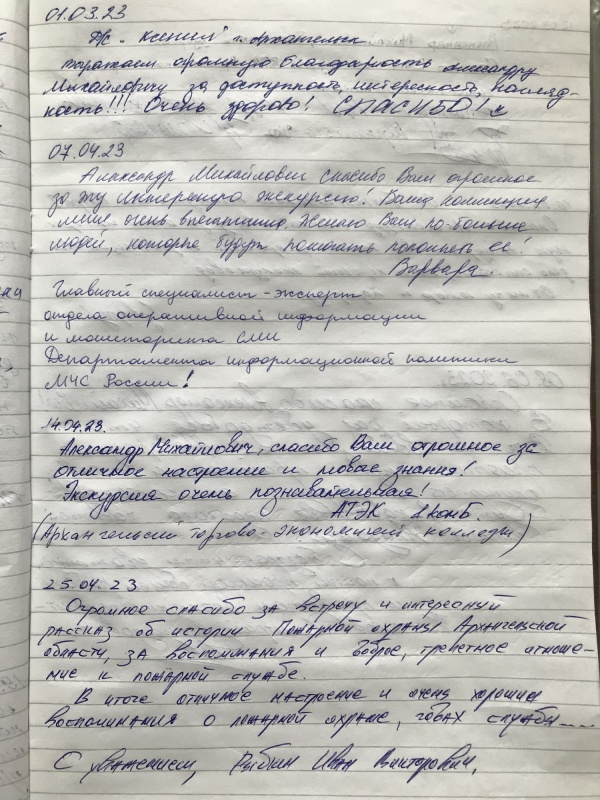 01.03.23
г. Архангельск
выражаем огромную благодарность Александру
Михайловичу за доступность, интересность, нагляд-
ность!!! Очень здорово! СПАСИБО!
07.04.23
Александр Михайлович спасибо Вам огромное
за эту интересную экскурсию! Ваша коллекция
меня очень впечатлила. Желаю Вам по-больше
людей, которые будут помогать пополнять её!
Варвара.
Главный специалист-эксперт
отдела оперативной информации
и мониторинга СМИ
Департамента информационной политики
МЧС России!
14.04.23.
Александр Михайлович, спасибо Вам огромное за
отличное настроение и новые знания!
Экскурсия очень познавательная!
АТЭК
(Архангельский торгово-экономичей колледж)
25.04.23
Огромное спасибо за встречу и интересный
рассказ об истории Пожарной охраны Архангельской
области, за воспоминания и доброе, трепетное отноше-
ние к пожарной службе.
В итоге отличное настроение и очень хорошие
воспоминания о пожарной охране, годах службы....
С уважением, Рыбин Иван Викторович.